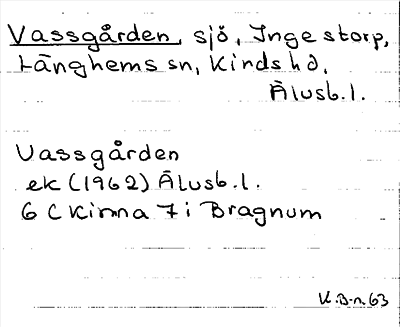 Vassgården, sjö, Ingestorp,
Länghems sn, Kinds hd,
Älvsb.l.
Vassgården
ek (1962) Älvsb.l.
6 C Kinna 7 i Bragnum
K.B-n 63